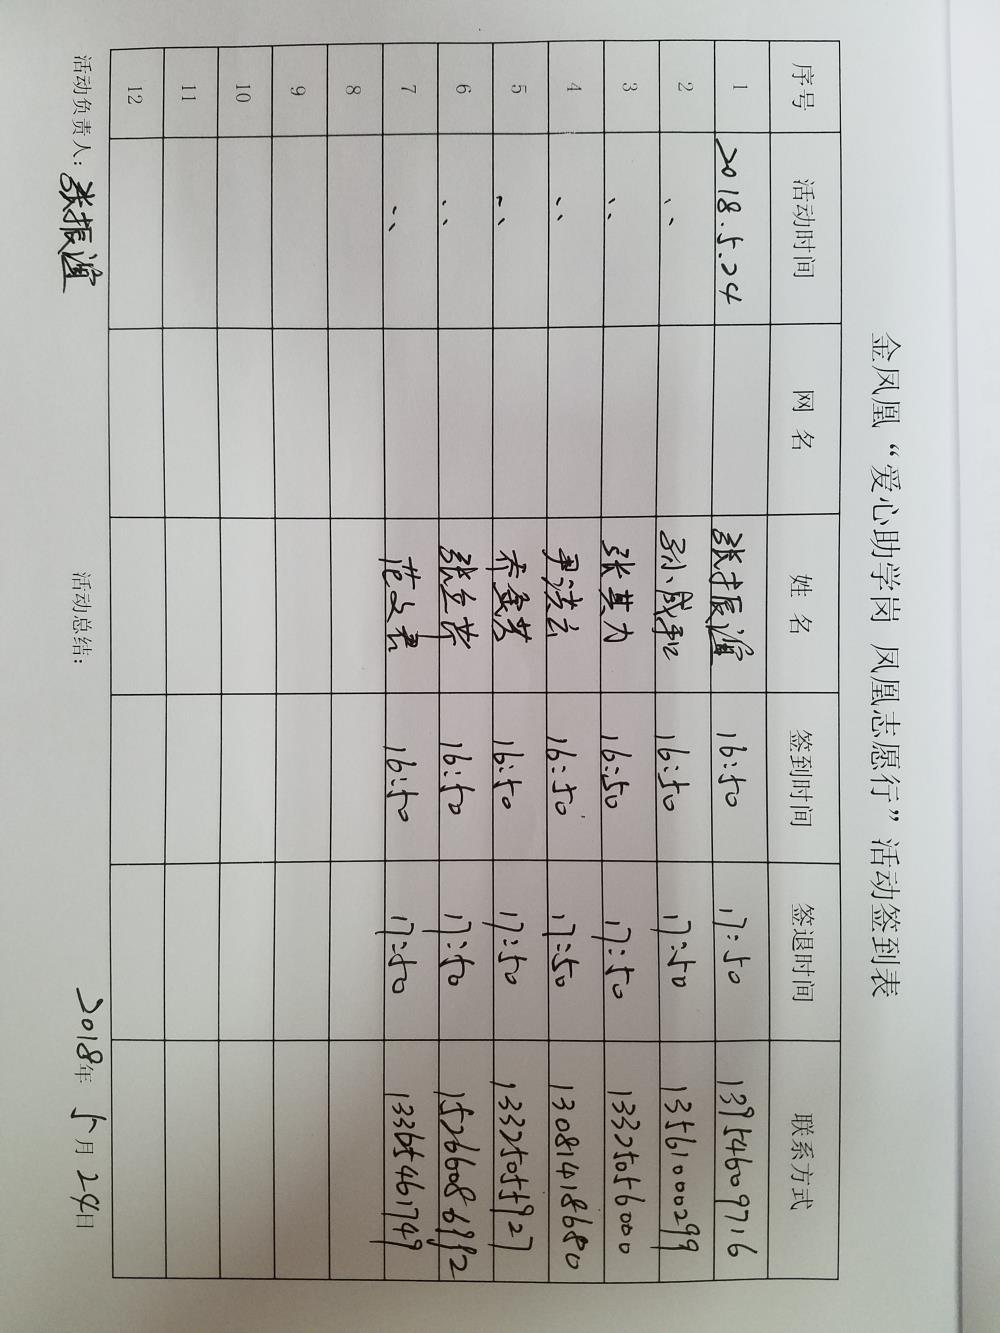 金凤凰“爱心助学岗 凤凰志愿行”活动签到表
序号 活动时间 网 名 姓 名 签到时间 签退时间 联系方式
1 2018.5.24 张振道 16:50 17:50 13954609716
2 〃 孙成和 16:50 17:50 13561000299
3 〃 张其力 16:50 17:50 13325056000
4 〃 尹洪云 16:50 17:50 13081418680
5 〃 16:50 17:50 13325055927
6 〃 16:50 17:50 15266086992
7 〃 范文君 16:50 17:50 13365461749
8
9
10
11
12
活动负责人: 张振道 活动总结: 2018年 5月 24日